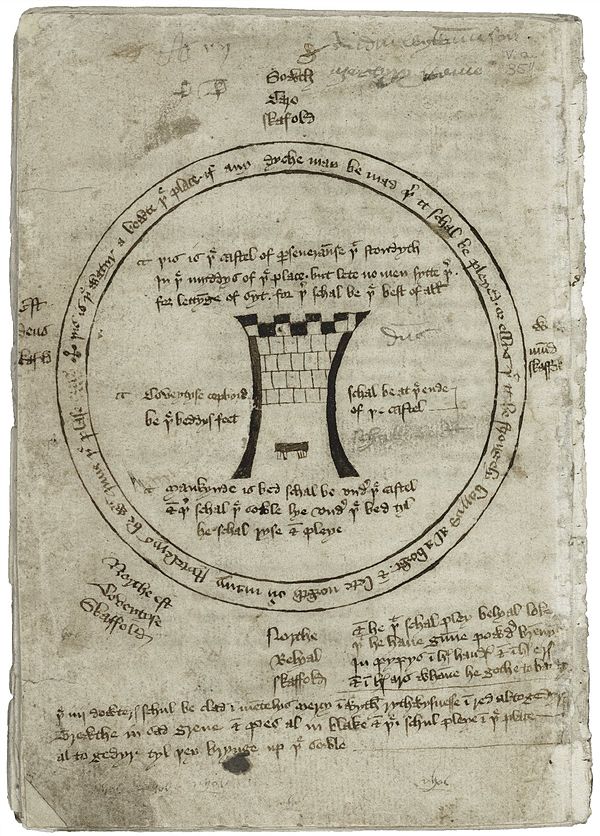 Sowth
Caro
skafold
þis is þe watyr a bowte þe place if any dyche may be mad þer it schal be pleyed or ellys þat it be strongely barryd al a bowt & lete nowth ouyr many stytelerys be wtinne þe plase
þis is þe castel of perseueraunse þt stondyth
In þe myddys of þe place but lete no men sytte þer
for lettynge of syt for þer schal be þe best of all
Est
deus
skafold
W
mund
skaffold
Coveytyse copbord
be þe beddys feet
schal be at þe ende
of þe castel
Mankynde is bed schal be undyr þe castel
& þer schal þe sowle lye undyr þe bed tyl
he schal ryse & pleye
Northe est
Coveytyse
Skaffold
Northe
Belyal
skaffold
& he þt schal pley belyal loke
þt he haue gunne powdyr brennynge
In pypys in hys handys & in hys erys
& in hys ars whanne he gothe to
þe iiij dowterys schul be clad in mentelys mercy in wyth rythwysnesse in red altogedyr
Trewthe in sad grene & pes al in blake & þei schul pleye in þe place
al to gedyr tyl þey brynge up þe sowle